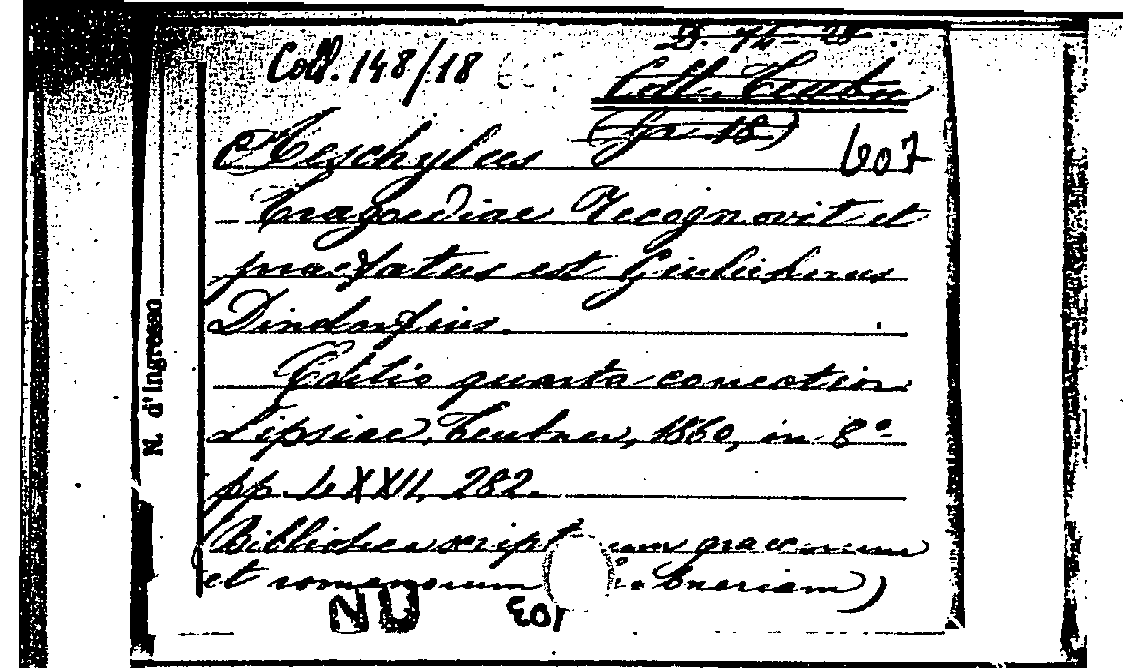 B. 74-28
Coll. 148/18
Coll. Teubn
(gr. 18)
Aeschylus
607
Tragoediae Recognovit et
praefatus est Guilielmus
Dindorfius.
Editio quarta correctior
Lipsiae, Teubner, 1860, in 8º
pp. LXXII, 282.
(Bibliotheca script um graecorum
et romanorum bneriam)
N. d'ingresso